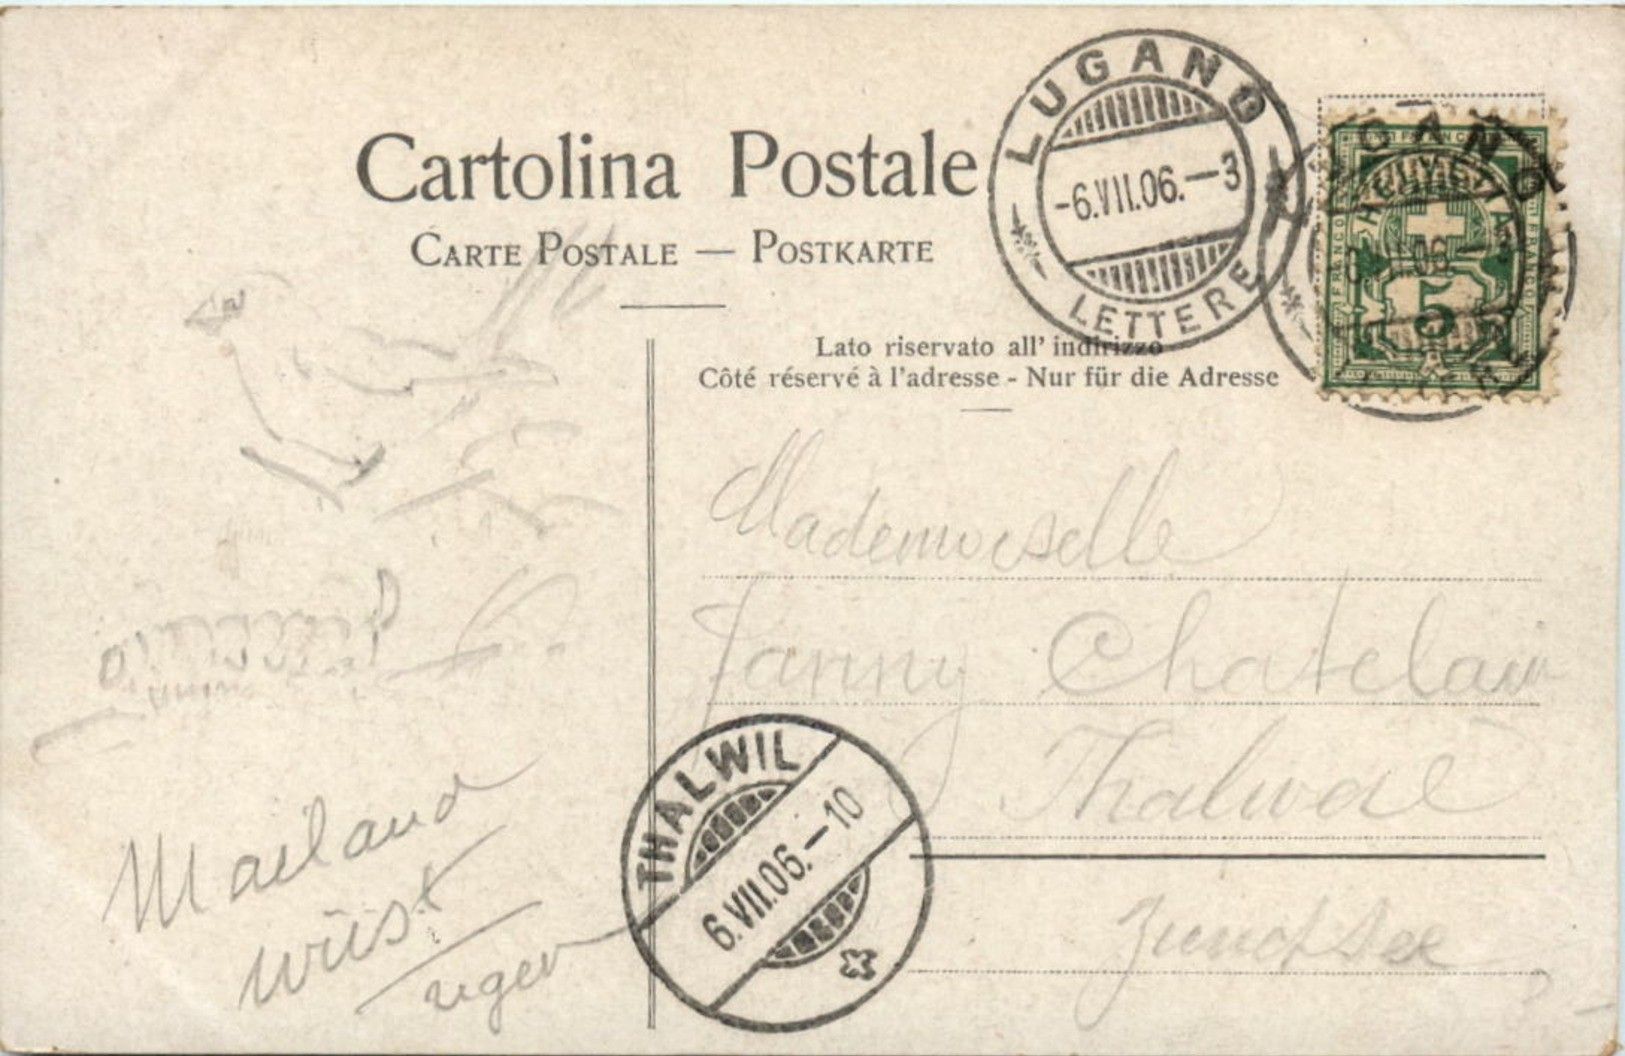 Cartolina Postale
CARTE POSTALE — POSTKARTE
LUGANO
-6.VII.06.—3
LETTERE
5
FRANCO
Lato riservato all' indirizzo
Côté réservé à l'adresse - Nur für die Adresse
Mademoiselle
Fanny Chatelain
Thalwil
THALWIL
6.VII.06.—10
Mailand
wüst